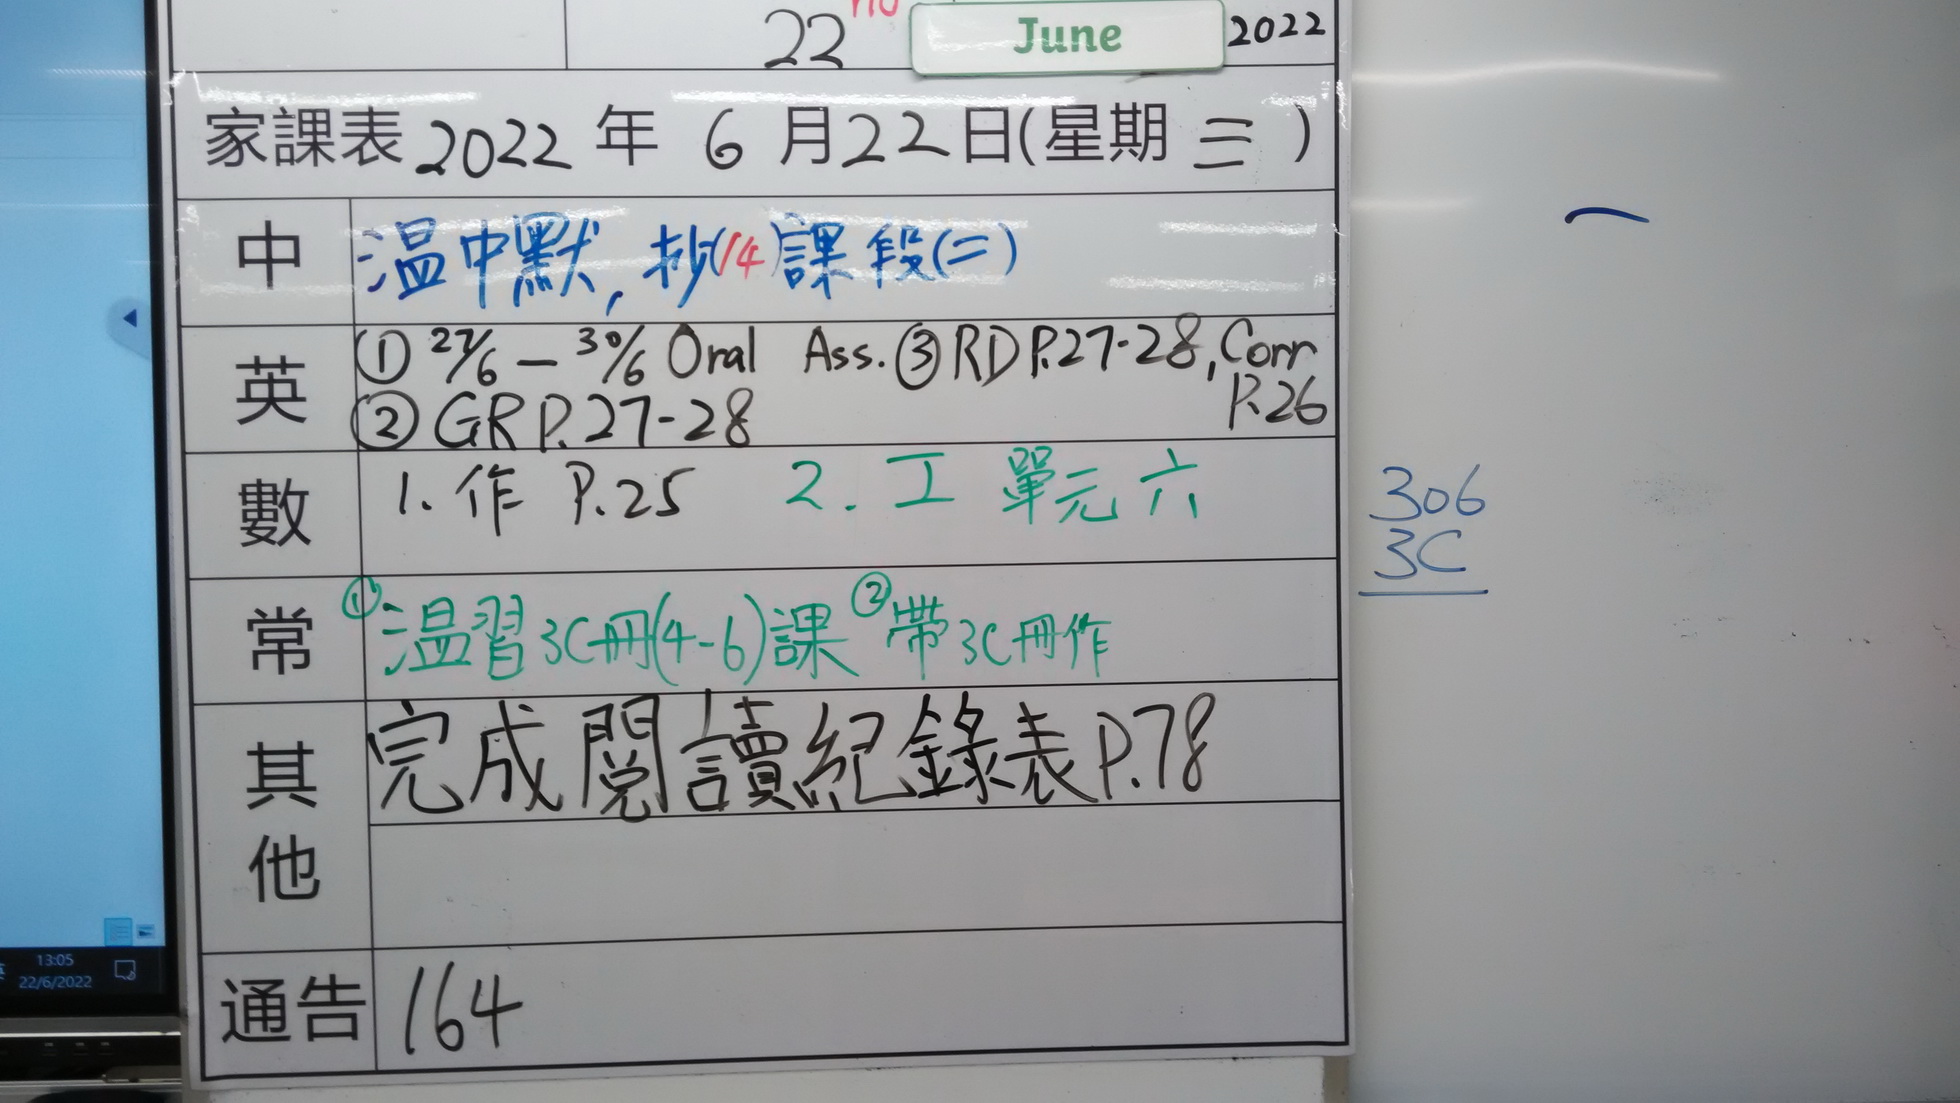 22 June 2022
家課表 2022 年 6 月 22 日(星期 三 )
中 温中默, 抄(14)課 段(二)
英 ① 27/6 — 30/6 Oral Ass. ③ RD P.27-28, Corr P.26
② GR P.27-28
數 1. 作 P.25 2. 工 單元六
常 ① 温習3C冊(4-6)課 ② 帶3C冊作
其他 完成閱讀紀錄表P.78
通告 164
306
3C
13:05
22/6/2022